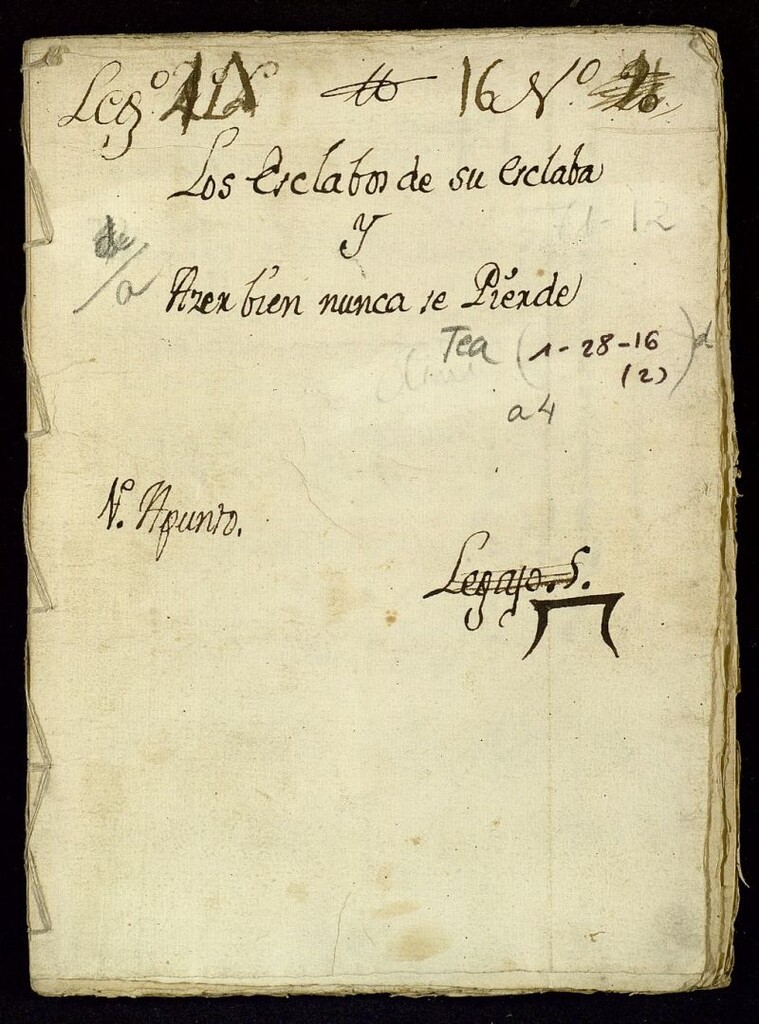 Leg.º 16 N.º
Los Esclabos de su esclaba
y
Azer bien nunca se Pierde
a
Tea (1-28-16
(2)) d
a4
N. Apunto.
Legajo. 5.